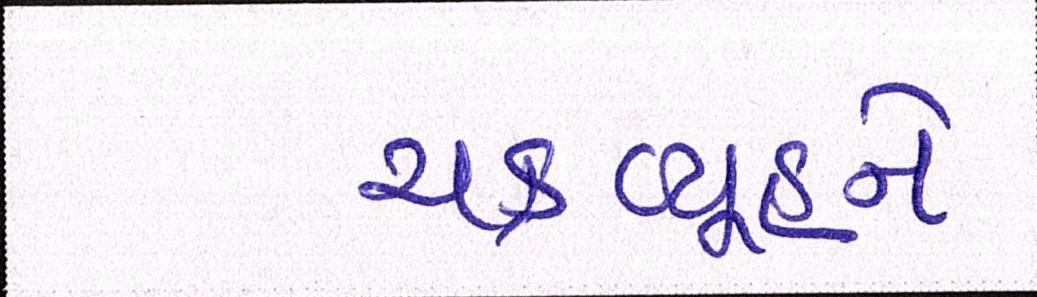 ચક્રવ્યૂહને